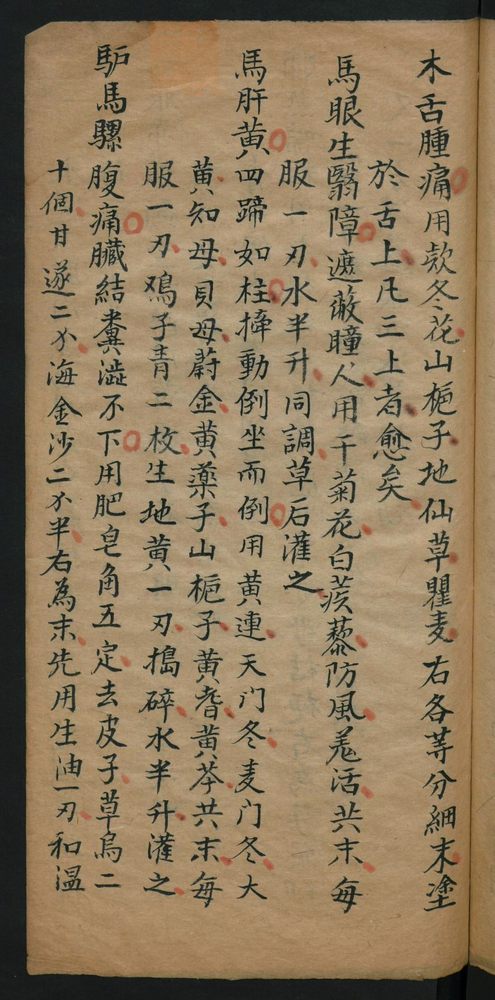 木舌腫痛用款冬花山梔子地仙草瞿麦右各等分細末塗
於舌上凡三上者愈矣
馬眼生翳障遮蔽瞳人用干菊花白蒺藜防風羌活共末每
服一刄水半升同調草后灌之
馬肝黄四蹄如柱擗動倒坐而倒用黄連天门冬麦门冬大
黄知母貝母蔚金黄藥子山梔子黄耆黄芩共末每
服一刄鳮子青二枚生地黄一刄搗碎水半升灌之
馿馬騾腹痛臓結糞澁不下用肥皂角五定去皮子草烏二
十個甘遂二分海金沙二分半右為末先用生油一刄和温